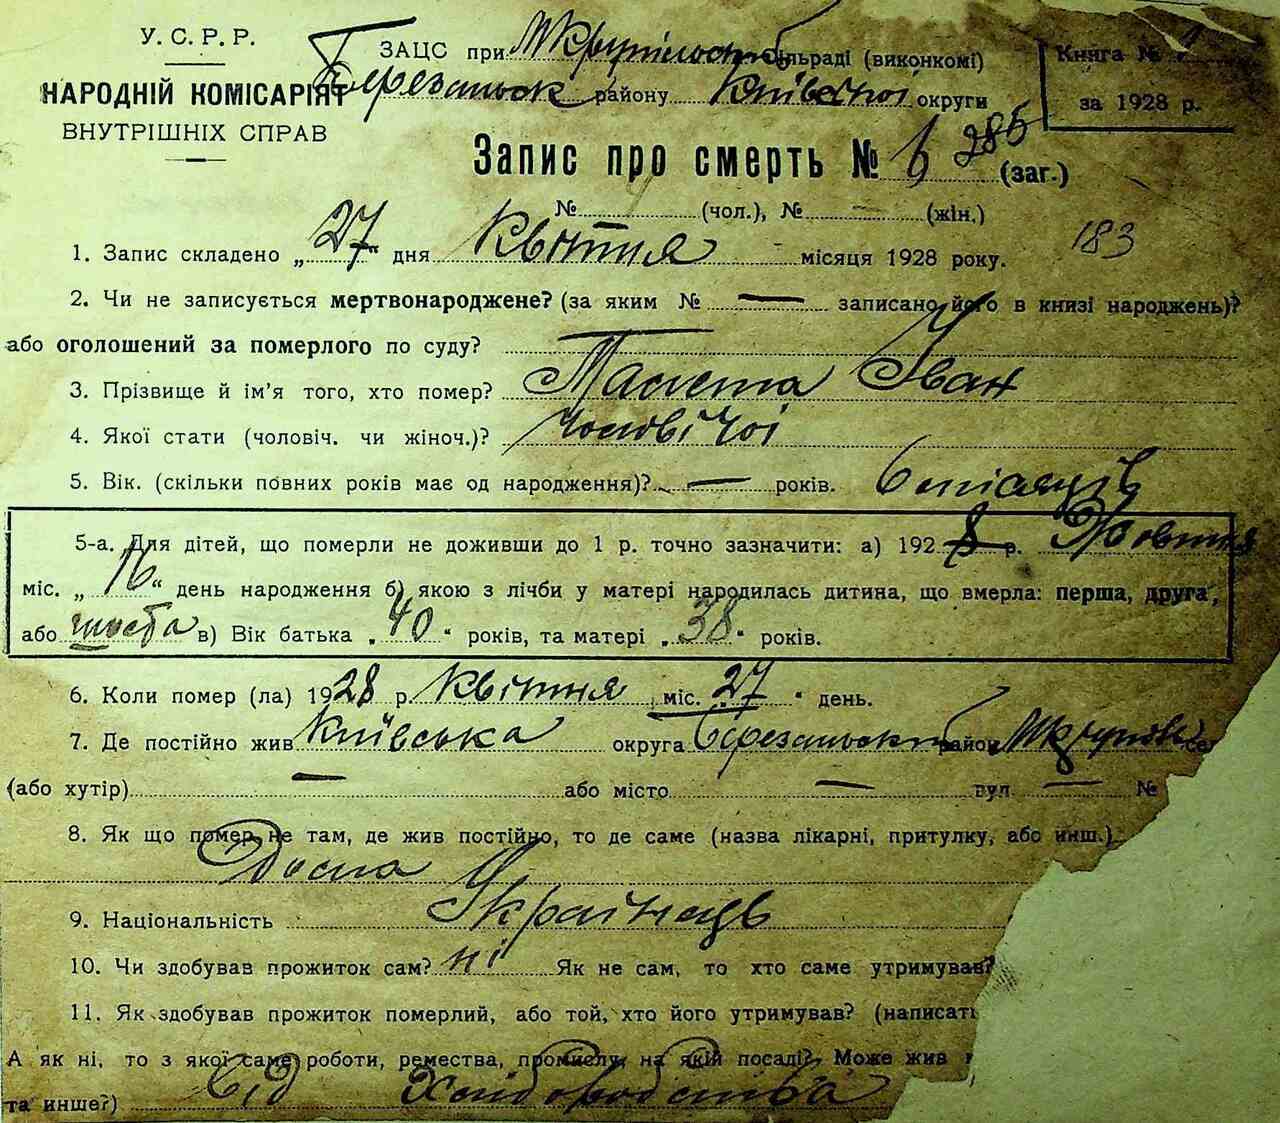 У. С. Р. Р.
НАРОДНІЙ КОМІСАРІЯТ
ВНУТРІШНІХ СПРАВ
ЗАЦС при сільраді (виконкомі)
Березанськ району Київської округи
Книга № 1
за 1928 р.
Запис про смерть № 6 285 (заг.)
№ (чол.), № — (жін.)
183
1. Запис складено „27“ дня Квітня — місяця 1928 року.
2. Чи не записується мертвонароджене? (за яким № — записано його в книзі народжень)?
або оголошений за померлого по суду?
3. Прізвище й ім'я того, хто помер? Іван
4. Якої стати (чоловіч. чи жіноч.)? Чоловічої
5. Вік. (скільки повних років має од народження)? — років. 6 місяців
5-а. Для дітей, що померли не доживши до 1 р. точно зазначити: а) 192 р. Жовтня
міс. „16“ день народження б) якою з лічби у матері народилась дитина, що вмерла: перша, друга,
або шоста в) Вік батька „40“ років, та матері „38“ років.
6. Коли помер (ла) 1928 р. Квітня міс. „27“ день.
7. Де постійно жив Київська округа Березанський район
(або хутір) — або місто — вул — №
8. Як що помер не там, де жив постійно, то де саме (назва лікарні, притулку, або инш.)
Дома
9. Національність Українець
10. Чи здобував прожиток сам? ні Як не сам, то хто саме утримував?
11. Як здобував прожиток померлий, або той, хто його утримував? (написати
А як ні, то з якої саме роботи, ремества, промислу, на якій посаді? Може жив
та инше?) від Хлібородства